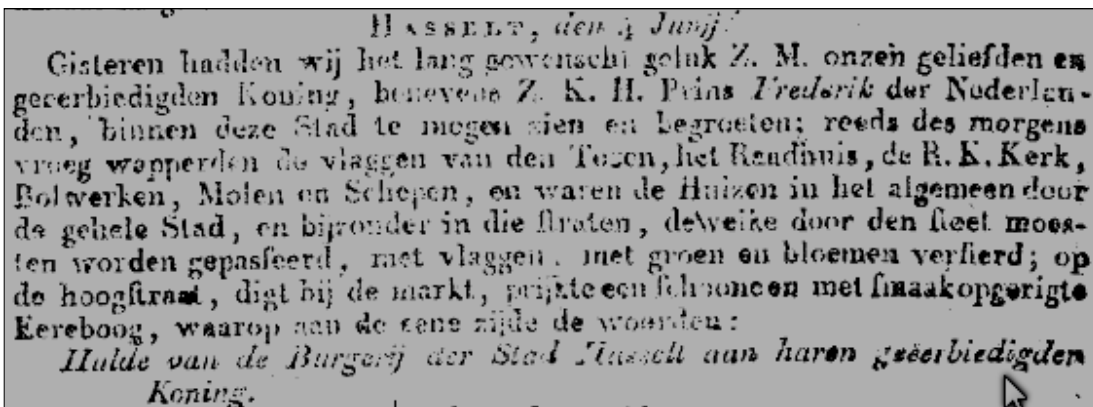 HASSELT, den 4 Junij.
Gisteren hadden wij het lang gewenscht geluk Z. M. onzen geliefden en
geeerbiedigden Koning, benevens Z. K. H. Prins Frederik der Nederlan-
den, binnen deze Stad te mogen zien en begroeten; reeds des morgens
vroeg wapperden de vlaggen van den Toren, het Raadhuis, de R. K. Kerk,
Bolwerken, Molen en Schepen, en waren de Huizen in het algemeen door
de gehele Stad, en bijzonder in die straten, dewelke door den stoet moes-
ten worden gepasseerd, met vlaggen, met groen en bloemen versierd; op
de hoogstraat, digt bij de markt, prijkte een schoone en met smaak opgerigte
Eereboog, waarop aan de eene zijde de woorden:
Hulde van de Burgerij der Stad Hasselt aan haren geëerbiedigden
Koning.